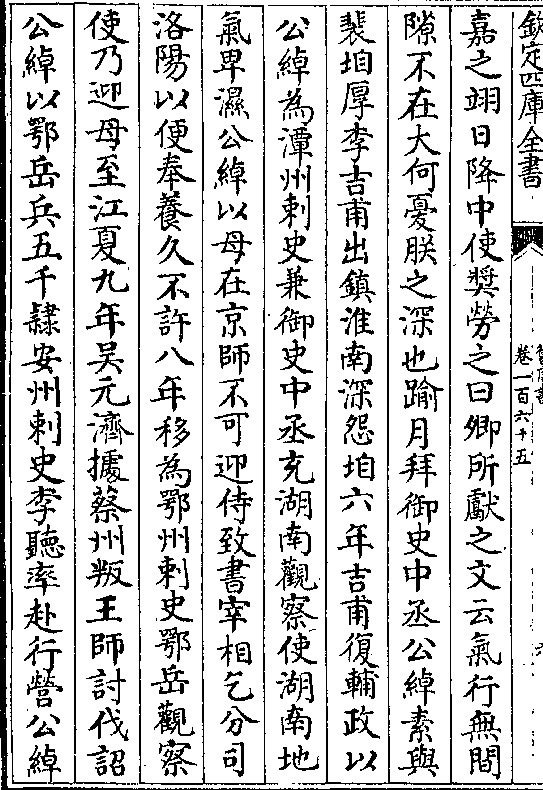 欽定四庫全書
舊唐書
卷一百六十五
嘉之翊日降中使奬勞之曰卿所獻之文云氣行無間
隙不在大何憂朕之深也踰月拜御史中丞公綽素與
裴垍厚李吉甫出鎮淮南深怨垍六年吉甫復輔政以
公綽為潭州刺史兼御史中丞充湖南觀察使湖南地
氣卑濕公綽以母在京師不可迎侍致書宰相乞分司
洛陽以便奉養久不許八年移為鄂州刺史鄂岳觀察
使乃迎母至江夏九年吳元濟據蔡州叛王師討伐詔
公綽以鄂岳兵五千隸安州刺史李聽率赴行營公綽